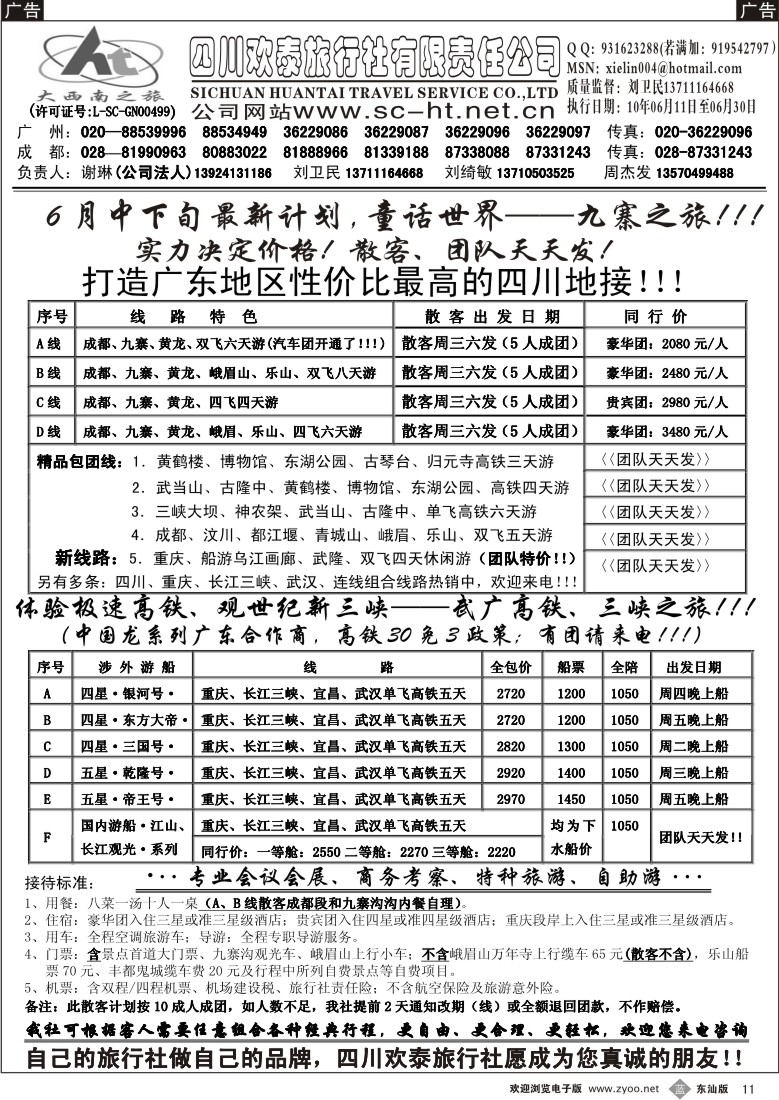 广告
广告
Ht
大西南之旅
(许可证号:L-SC-GN00499)
四川欢泰旅行社有限责任公司
SICHUAN HUANTAI TRAVEL SERVICE CO.,LTD
公司网站www.sc-ht.net.cn
Q Q: 931623288(若满加: 919542797)
MSN: xielin004@hotmail.com
质量监督: 刘卫民13711164668
执行日期: 10年06月11日至06月30日
广 州: 020—88539996 88534949 36229086 36229087 36229096 36229097 传真: 020-36229096
成 都: 028—81990963 80883022 81888966 81339188 87338088 87331243 传真: 028-87331243
负责人: 谢琳(公司法人)13924131186 刘卫民 13711164668 刘绮敏 13710503525 周杰发 13570499488
6月中下旬最新计划,童话世界——九寨之旅!!!
实力决定价格!散客、团队天天发!
打造广东地区性价比最高的四川地接!!!
序号 线 路 特 色 散 客 出 发 日 期 同 行 价
A 线 成都、九寨、黄龙、双飞六天游(汽车团开通了!!!) 散客周三六发(5 人成团) 豪华团: 2080 元/人
B 线 成都、九寨、黄龙、峨眉山、乐山、双飞八天游 散客周三六发(5 人成团) 豪华团: 2480 元/人
C 线 成都、九寨、黄龙、四飞四天游 散客周三六发(5 人成团) 贵宾团: 2980 元/人
D 线 成都、九寨、黄龙、峨眉、乐山、四飞六天游 散客周三六发(5 人成团) 豪华团: 3480 元/人
精品包团线: 1. 黄鹤楼、博物馆、东湖公园、古琴台、归元寺高铁三天游 〈〈团队天天发〉〉
2. 武当山、古隆中、黄鹤楼、博物馆、东湖公园、高铁四天游 〈〈团队天天发〉〉
3. 三峡大坝、神农架、武当山、古隆中、单飞高铁六天游 〈〈团队天天发〉〉
4. 成都、汶川、都江堰、青城山、峨眉、乐山、双飞五天游 〈〈团队天天发〉〉
新线路: 5. 重庆、船游乌江画廊、武隆、双飞四天休闲游(团队特价!!) 〈〈团队天天发〉〉
另有多条: 四川、重庆、长江三峡、武汉、连线组合线路热销中, 欢迎来电!!!
体验极速高铁、观世纪新三峡——武广高铁、三峡之旅!!!
(中国龙系列广东合作商, 高铁30免3政策; 有团请来电!!!)
序号 涉 外 游 船 线 路 全包价 船票 全陪 出发日期
A 四星·银河号· 重庆、长江三峡、宜昌、武汉单飞高铁五天 2720 1200 1050 周四晚上船
B 四星·东方大帝· 重庆、长江三峡、宜昌、武汉单飞高铁五天 2720 1200 1050 周五晚上船
C 四星·三国号· 重庆、长江三峡、宜昌、武汉单飞高铁五天 2820 1300 1050 周二晚上船
D 五星·乾隆号· 重庆、长江三峡、宜昌、武汉单飞高铁五天 2920 1400 1050 周三晚上船
E 五星·帝王号· 重庆、长江三峡、宜昌、武汉单飞高铁五天 2970 1450 1050 周五晚上船
F 国内游船·江山、长江观光·系列 重庆、长江三峡、宜昌、武汉单飞高铁五天 均为下水船价 1050 团队天天发!!
同行价: 一等舱: 2550 二等舱: 2270 三等舱: 2220
接待标准:
···专业会议会展、商务考察、特种旅游、自助游···
1、用餐: 八菜一汤十人一桌(A、B线散客成都段和九寨沟沟内餐自理)。
2、住宿: 豪华团入住三星或准三星级酒店; 贵宾团入住四星或准四星级酒店; 重庆段岸上入住三星或准三星级酒店。
3、用车: 全程空调旅游车; 导游: 全程专职导游服务。
4、门票: 含景点首道大门票、九寨沟观光车、峨眉山上行小车; 不含峨眉山万年寺上行缆车 65 元(散客不含), 乐山船
票 70 元、丰都鬼城缆车费 20 元及行程中所列自费景点等自费项目。
5、机票: 含双程/四程机票、机场建设税、旅行社责任险; 不含航空保险及旅游意外险。
备注: 此散客计划按 10 成人成团, 如人数不足, 我社提前 2 天通知改期(线)或全额退回团款, 不作赔偿。
我社可根据客人需要任意组合各种经典行程, 更自由、更合理、更轻松, 欢迎您来电咨询
自己的旅行社做自己的品牌, 四川欢泰旅行社愿成为您真诚的朋友!!
欢迎浏览电子版 www.zyoo.net 蓝 东汕版 11